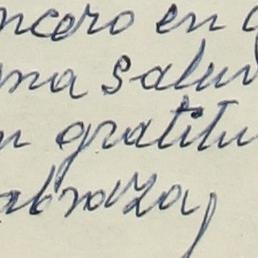 ncero en q
ma salud
n gratitu
abraza,